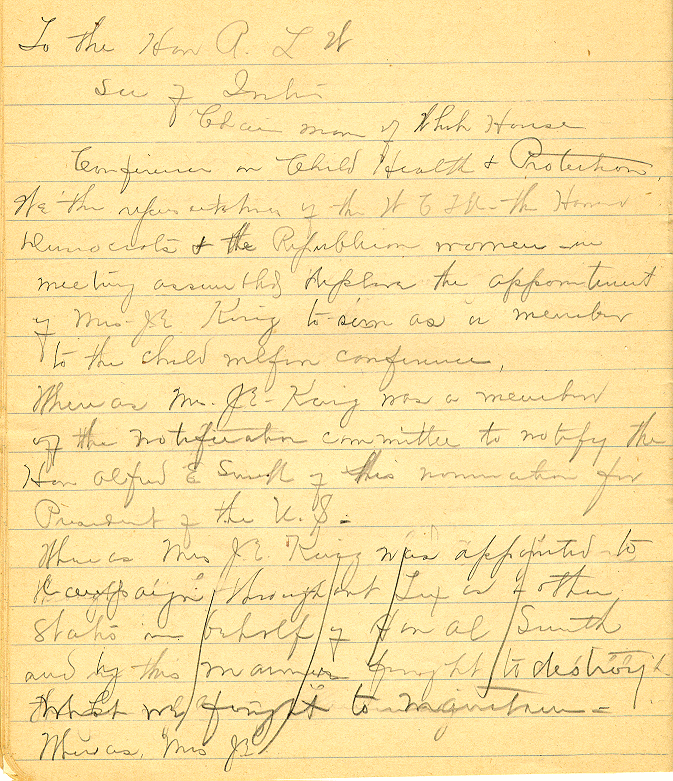 To the Hon R. L W
Sec of Intr
Chair man of White House
Conference on Child Health & Protection,
We the representatives of the W C T U - the Hoover
Democrats & the Republican women in
meeting assembled deplore the appointment
of Mrs. J E King to serve as a member
to the child welfare conference,
Whereas Mrs. J E - King was a member
of the notification committee to notify the
Hon Alfred E Smith of his nomination for
President of the U. S.
Whereas Mrs J. E. King was appointed to
campaign throughout Tex as & other
States in behalf of Hon Al Smith
and by this manner fought to destroy
what we fought to maintain -
Whereas, Mrs J E